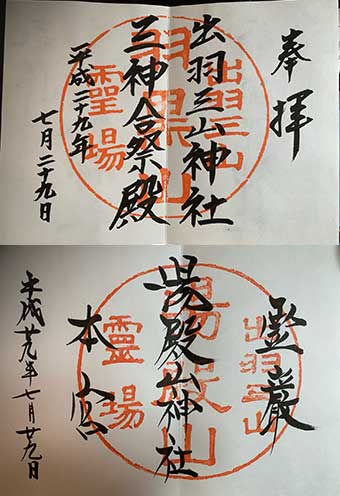 奉拝
出羽三山神社
三神合祭殿
平成二十九年
七月二十九日
出羽三山
羽黒山
霊場
霊巌
湯殿山神社
本宮
平成廿九年七月廿九日
出羽三山
湯殿山
靈場